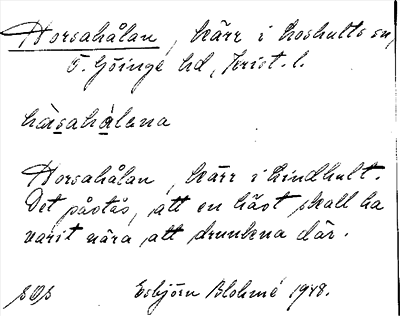 Horsahålan, kärr i Loshults sn,
Ö. Göinge hd, Krist. l.
håsahålena
Horsahålan, kärr i Lindhult.
Det påstås, att en häst skall ha
varit nära att drunkna där.
SOS Esbjörn Blohmé 1948.